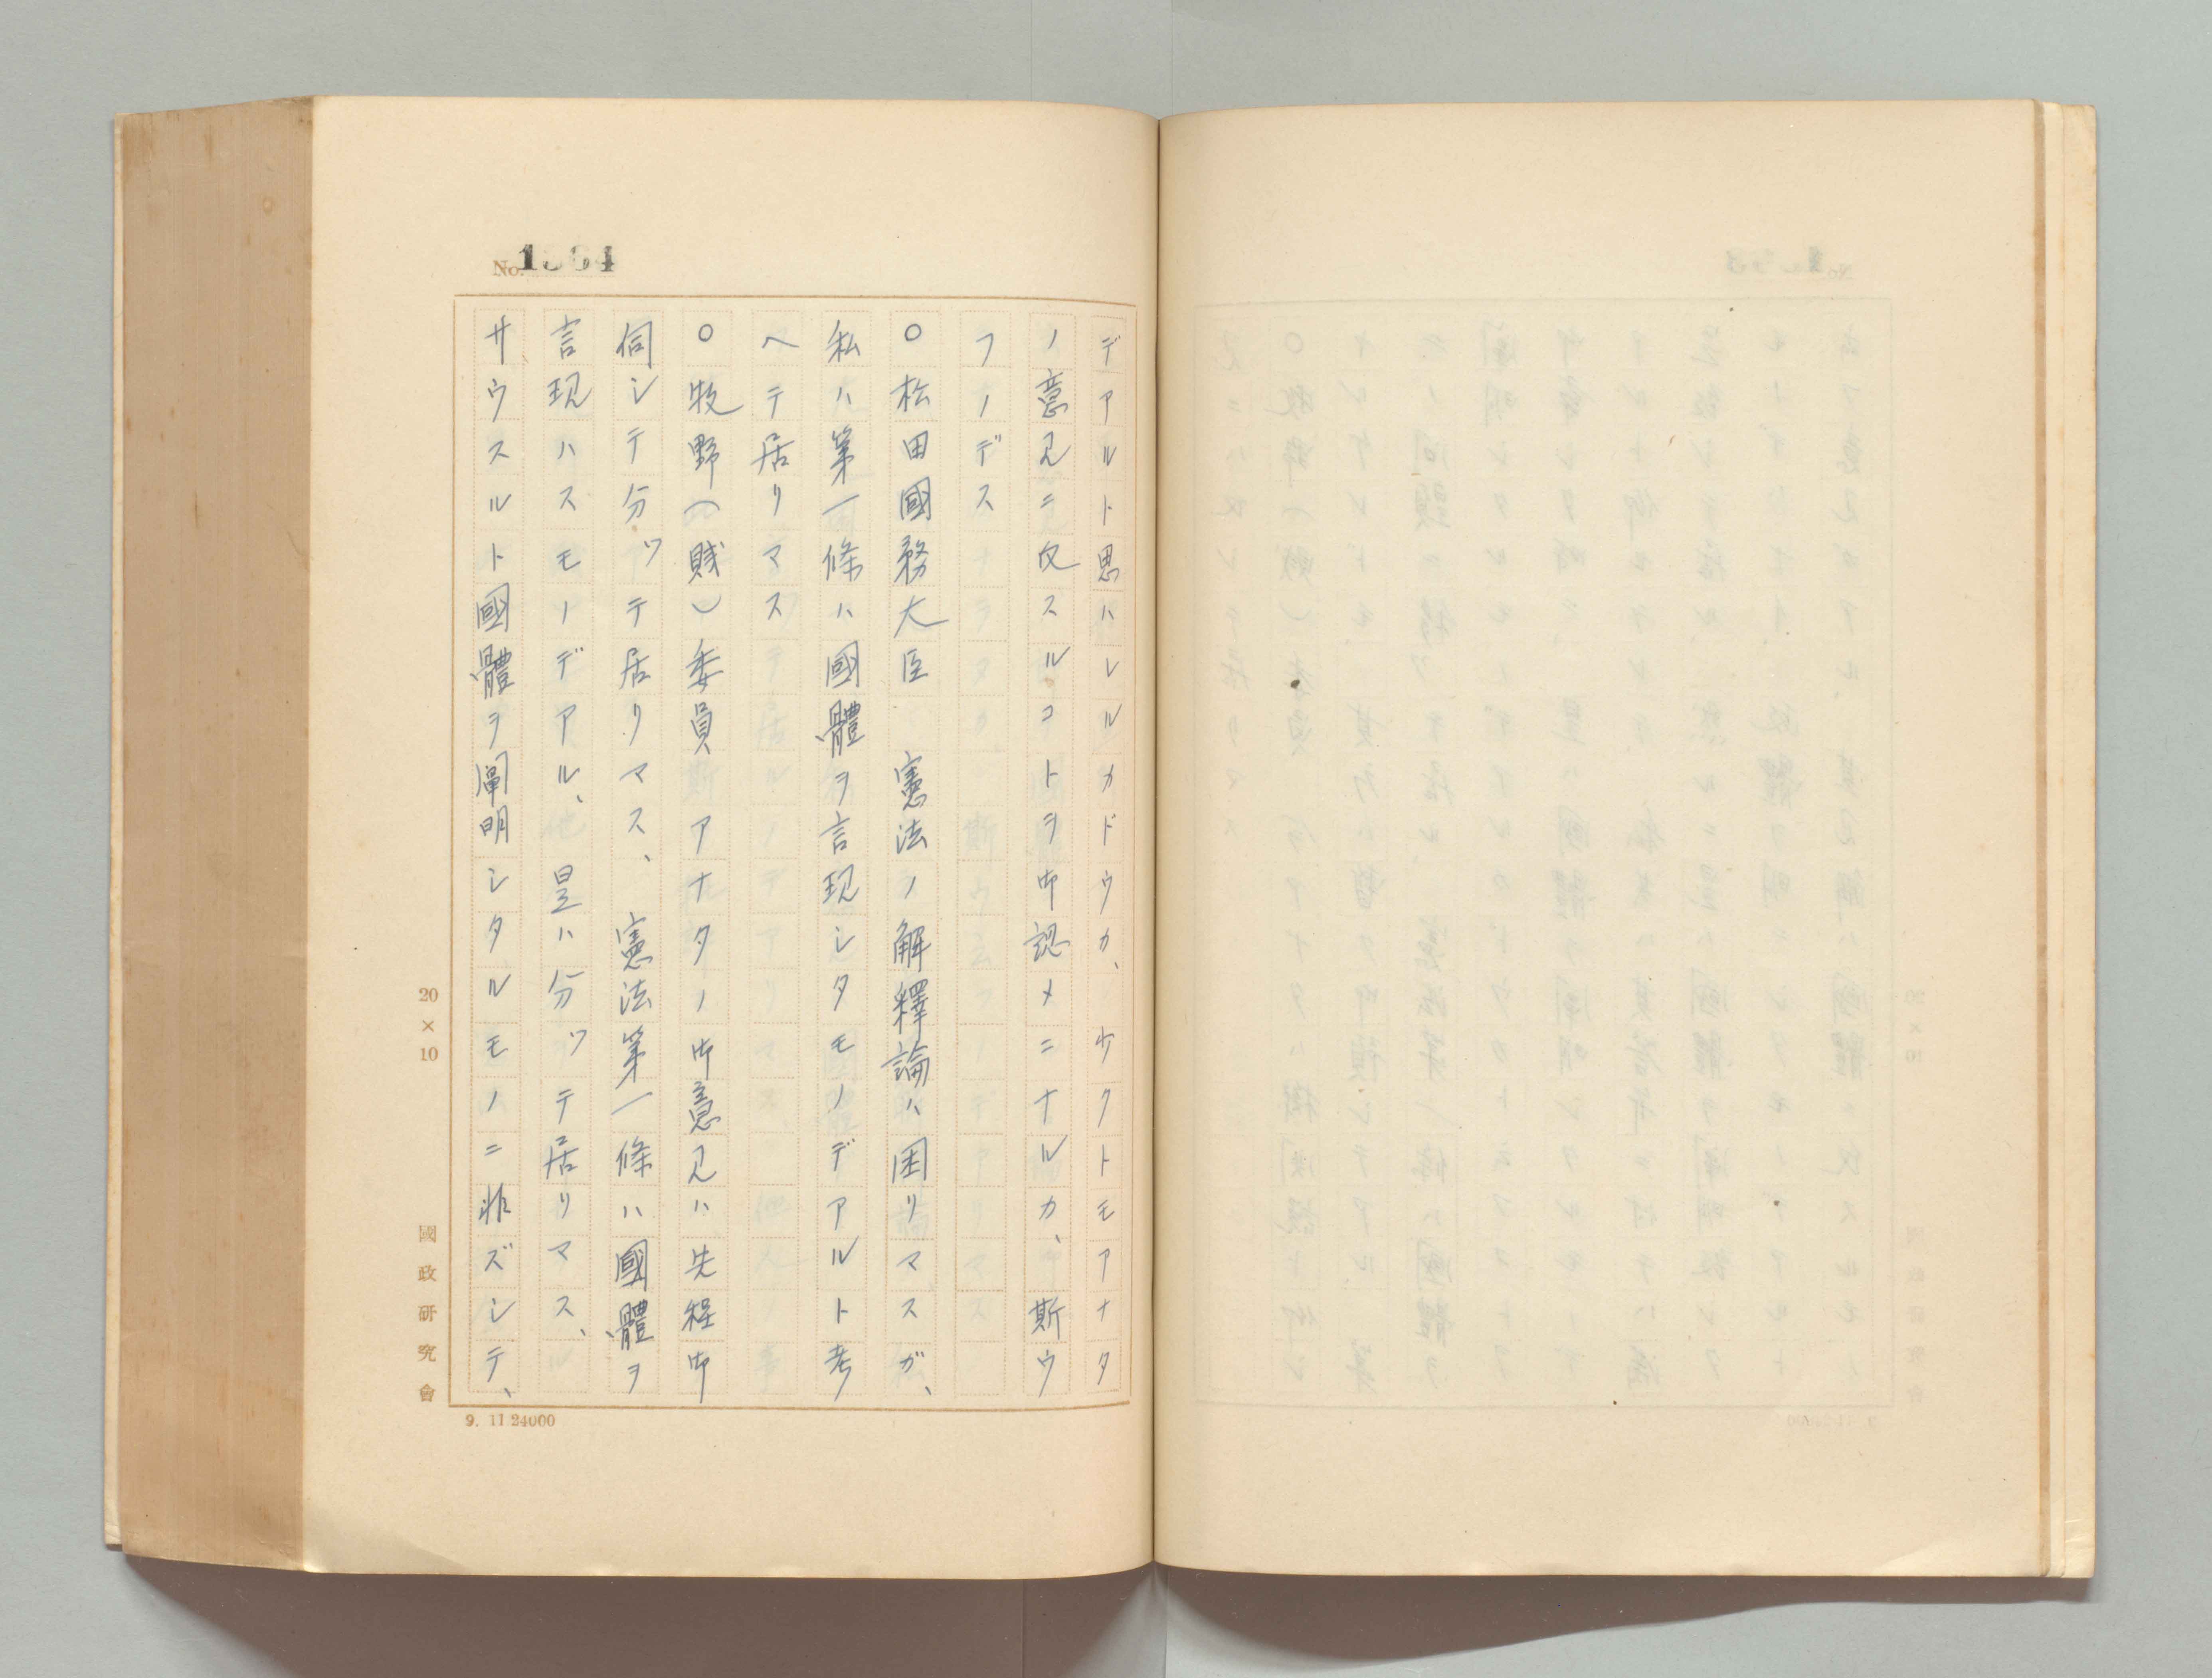 デアルト思ハレルカドウカ、少クトモアナタ
ノ意見ニ反スルコトヲ御認メニナルカ、斯ウ
フノデス
○松田國務大臣　憲法ノ解釋論ハ困リマスガ、
私ハ第一條ハ國體ヲ言現シタモノデアルト考
ヘテ居リマス
○牧野(賤)委員　アナタノ御意見ハ先程御
伺シテ分ッテ居リマス、憲法第一條ハ國體ヲ
言現ハスモノデアル、是ハ分ッテ居リマス、
サウスルト國體ヲ闡明シタルモノニ非ズシテ、
20×10
國政研究會
9. 11 24000